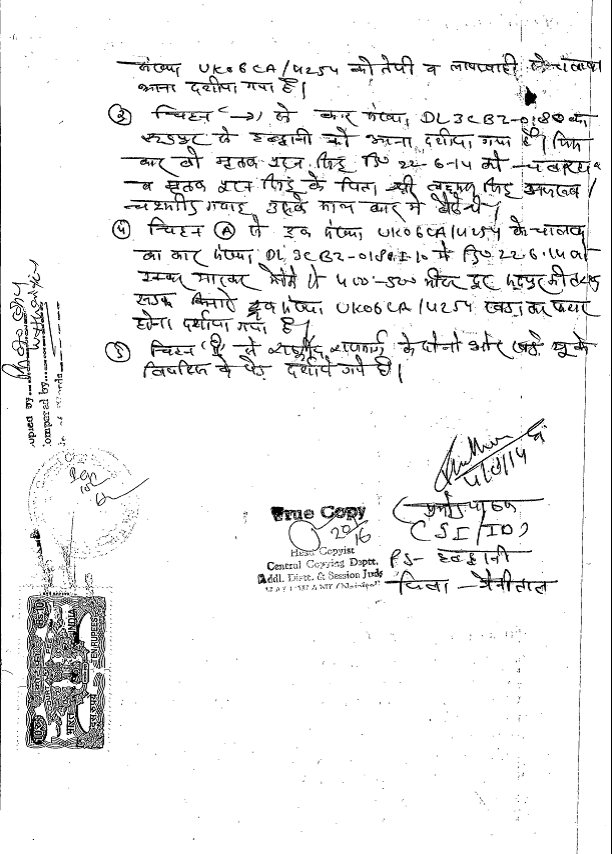 संख्या UK06CA/4254 को तेजी व लापरवाही से चलाकर
आना दर्शाया गया है।
③ चिन्ह (→) से कार संख्या DL3CBZ-0180 का
रुद्रपुर से हल्द्वानी को आना दर्शाया गया है। जिस
कार को मृतक सिंह दि० 22-6-14 को चला रहा
व मृतक सिंह के पिता श्री सिंह
गवाह उसके साथ कार में बैठे थे।
④ चिन्ह Ⓐ से ट्रक संख्या UK06CA/4254 के चालक
का कार संख्या DL3CBZ-0180 में दि० 22.6.14 को
टक्कर मारकर मौके से 400-500 मीटर दूर रुद्रपुर की तरफ
सड़क किनारे ट्रक संख्या UK06CA/4254 खड़ा कर फरार
होना दर्शाया गया है।
⑤ चिन्ह से राष्ट्रीय राजमार्ग के दोनों ओर खड़े
के पेड़ दर्शाये गये हैं।
4/8/14
(प्रमोद पाठक)
(SI/IO)
PS- हल्द्वानी
जिला - नैनीताल
True Copy
20/16
Head Copyist
Central Copying Deptt.
Addl. Distt. & Session Judge
HALDWANI (Nainital)
Copied by
Compared by
INDIA
TEN RUPEES
भारत
दस रुपये